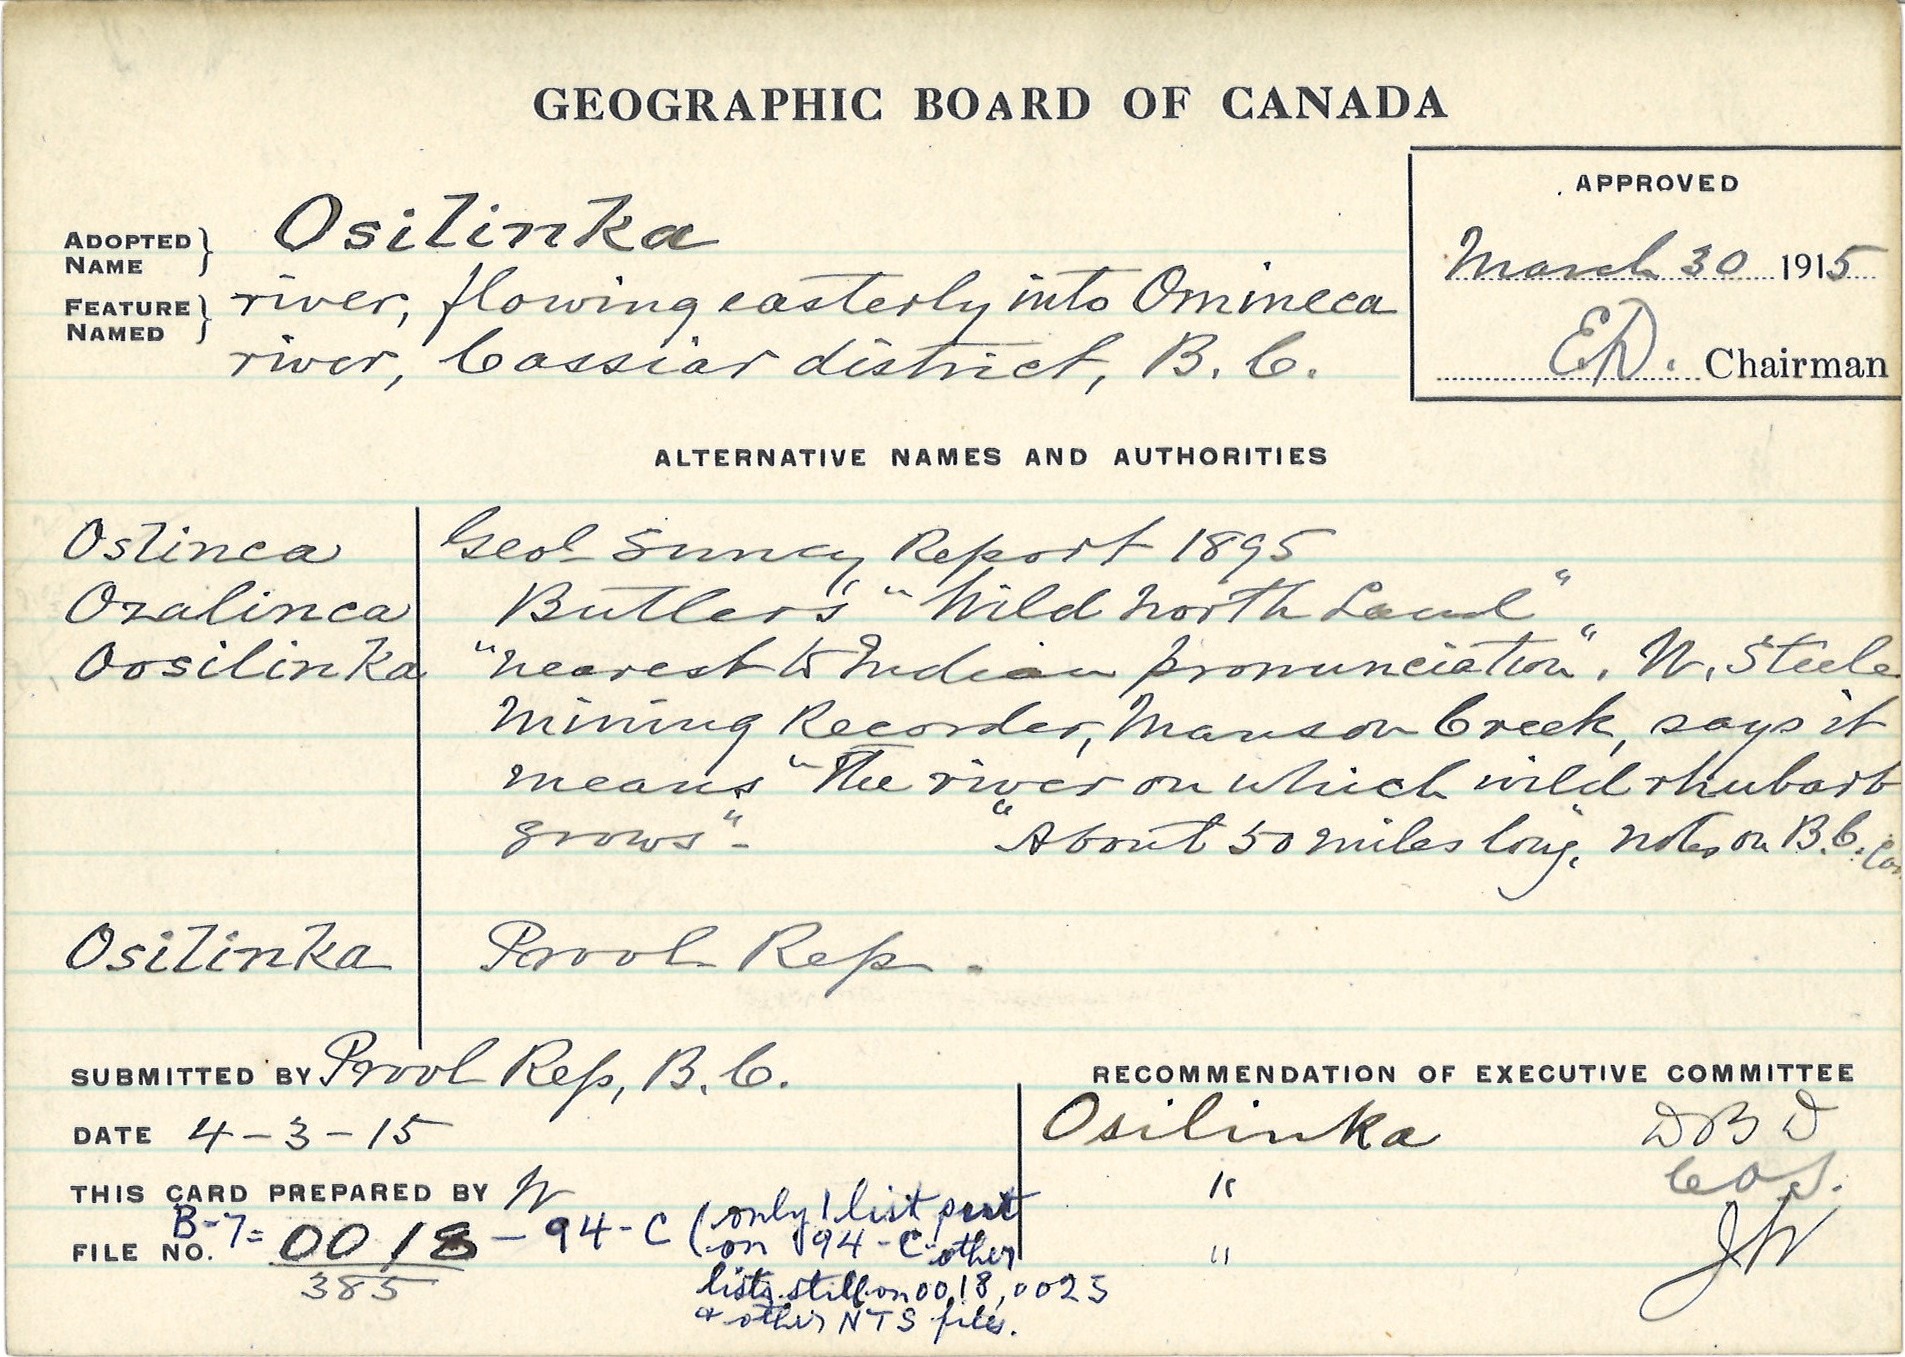 GEOGRAPHIC BOARD OF CANADA
APPROVED
March 30 1915
E.D. Chairman
ADOPTED NAME } Osilinka
FEATURE NAMED } river, flowing easterly into Omineca
river, Cassiar district, B. C.
ALTERNATIVE NAMES AND AUTHORITIES
Oslinca Geol Survey Report 1895
Ozalinca Butler's "Wild North Land"
Oosilinka "nearest to Indian pronunciation". W. Steele
Mining Recorder, Manson Creek, says it
means "The river on which wild rhubarb
grows"- "About 50 miles long". Notes on B.C.
Osilinka Provl Rep.
SUBMITTED BY Provl Rep, B. C.
DATE 4-3-15
THIS CARD PREPARED BY W
FILE NO. B-7= 0018 - 94-C (only 1 list put
385 (on 94-C other
lists still on 0018, 0025
& other NTS files.
RECOMMENDATION OF EXECUTIVE COMMITTEE
Osilinka DBD
"
" JW